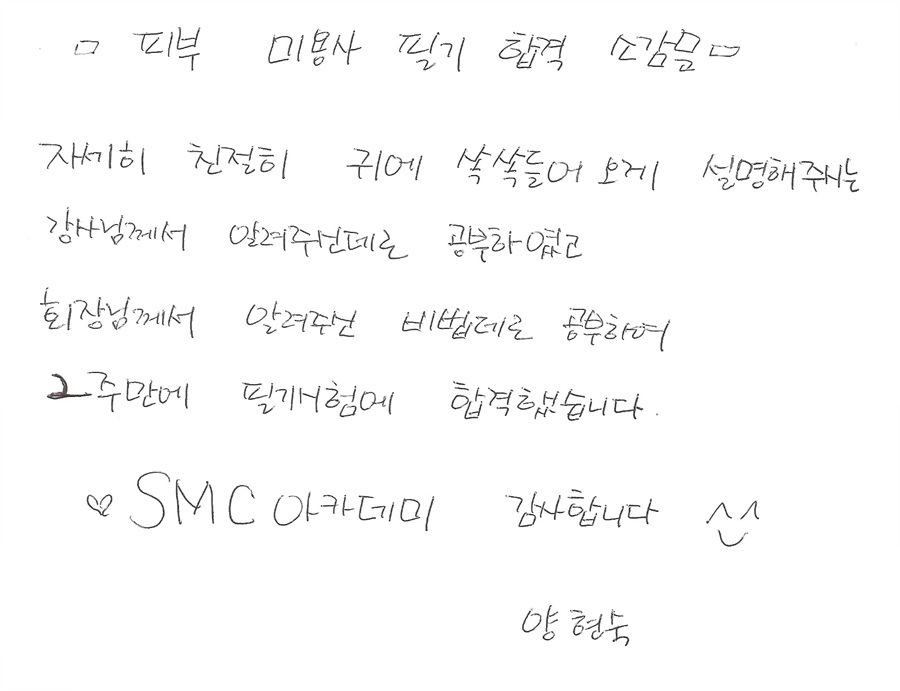 □ 피부 미용사 필기 합격 소감문 □
자세히 친절히 귀에 쏙쏙들어 오게 설명해주시는
강사님께서 알려주신데로 공부하였고
회장님께서 알려주신 비법데로 공부하여
2주만에 필기시험에 합격했습니다.
♡ SMC 아카데미 감사합니다 ^^
양현숙